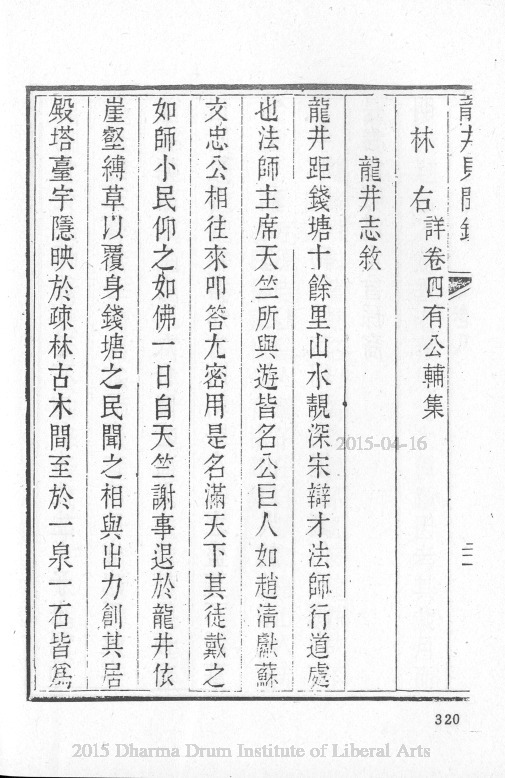 龍井見聞錄
林右詳卷四有公輔集
龍井志敘
龍井距錢塘十餘里山水靚深宋辯才法師行道處
也法師主席天竺所與遊皆名公巨人如趙淸獻蘇
文忠公相往來叩答尤密用是名滿天下其徒戴之
如師小民仰之如佛一日自天竺謝事退於龍井依
崖壑縛草以覆身錢塘之民聞之相與出力創其居
殿塔臺宇隱映於疎林古木間至於一泉一石皆爲
2015-04-16
320
2015 Dharma Drum Institute of Liberal Arts